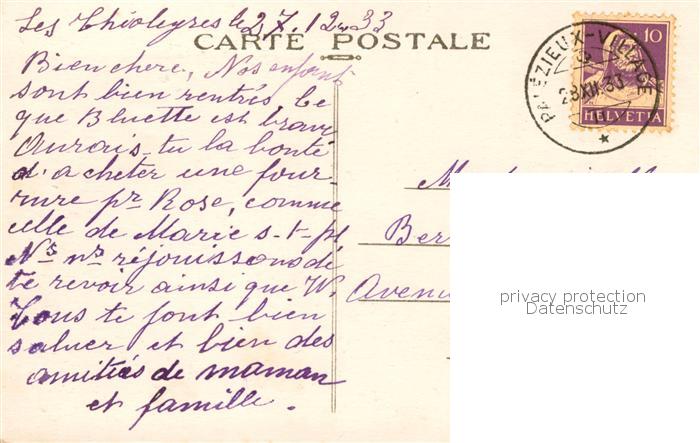 Les Thioleyres le 27. 12. 33
CARTE POSTALE
Bien chère, Nos enfants
sont bien rentrés, ce
que Bluette est brave
Aurais-tu la bonté
d'acheter une four-
rure pr Rose, comme
celle de Marie s-t-pl
Ns ns réjouissons de
te revoir ainsi que W.
Tous te font bien
saluer et bien des
amitiés de maman
et famille.
PALÉZIEUX-VILLAGE
28.XII.33
10
HELVETIA
Ber
Avenu
privacy protection
Datenschutz